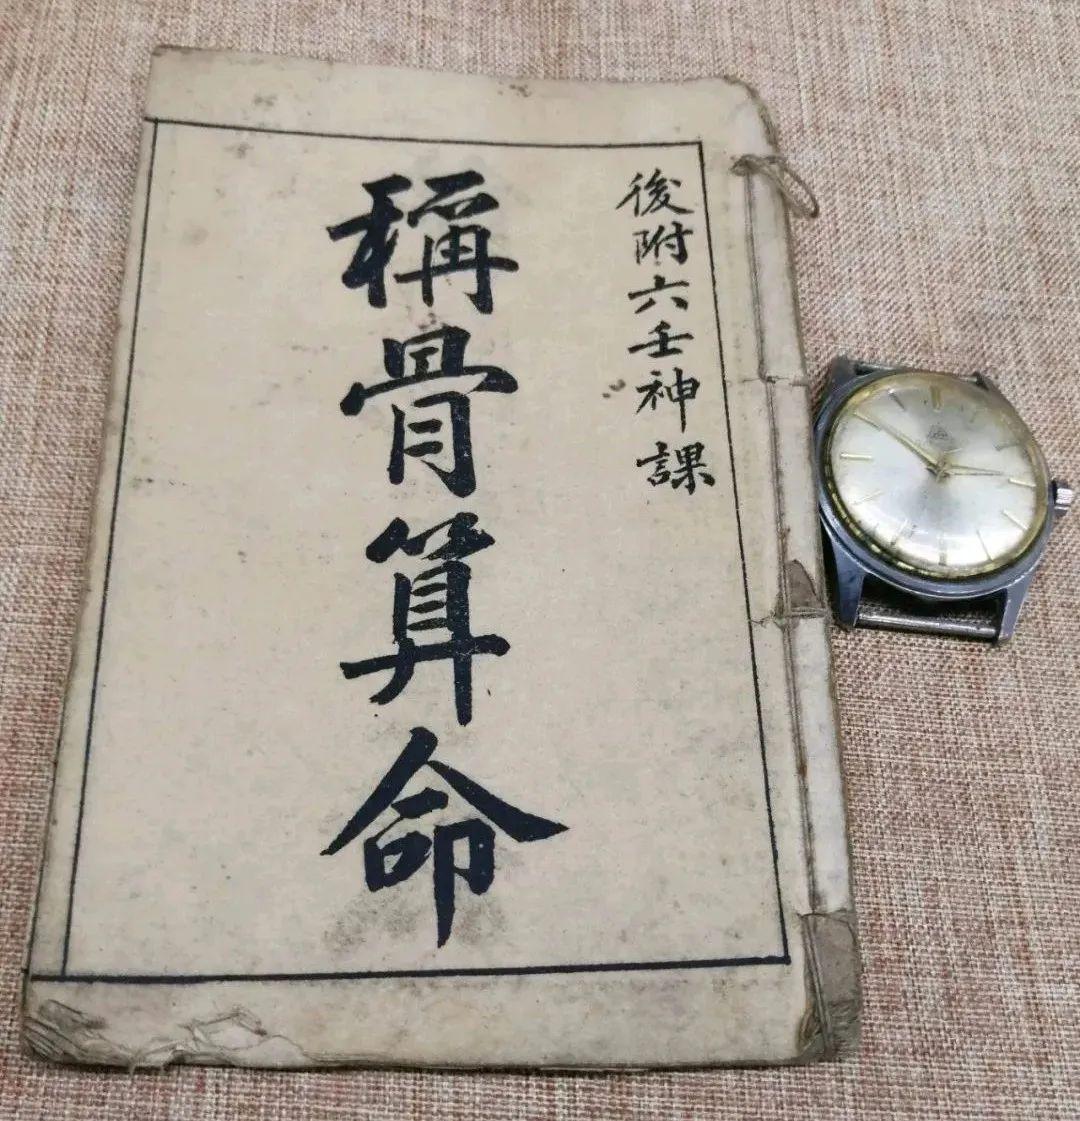 後附六壬神課
稱骨算命